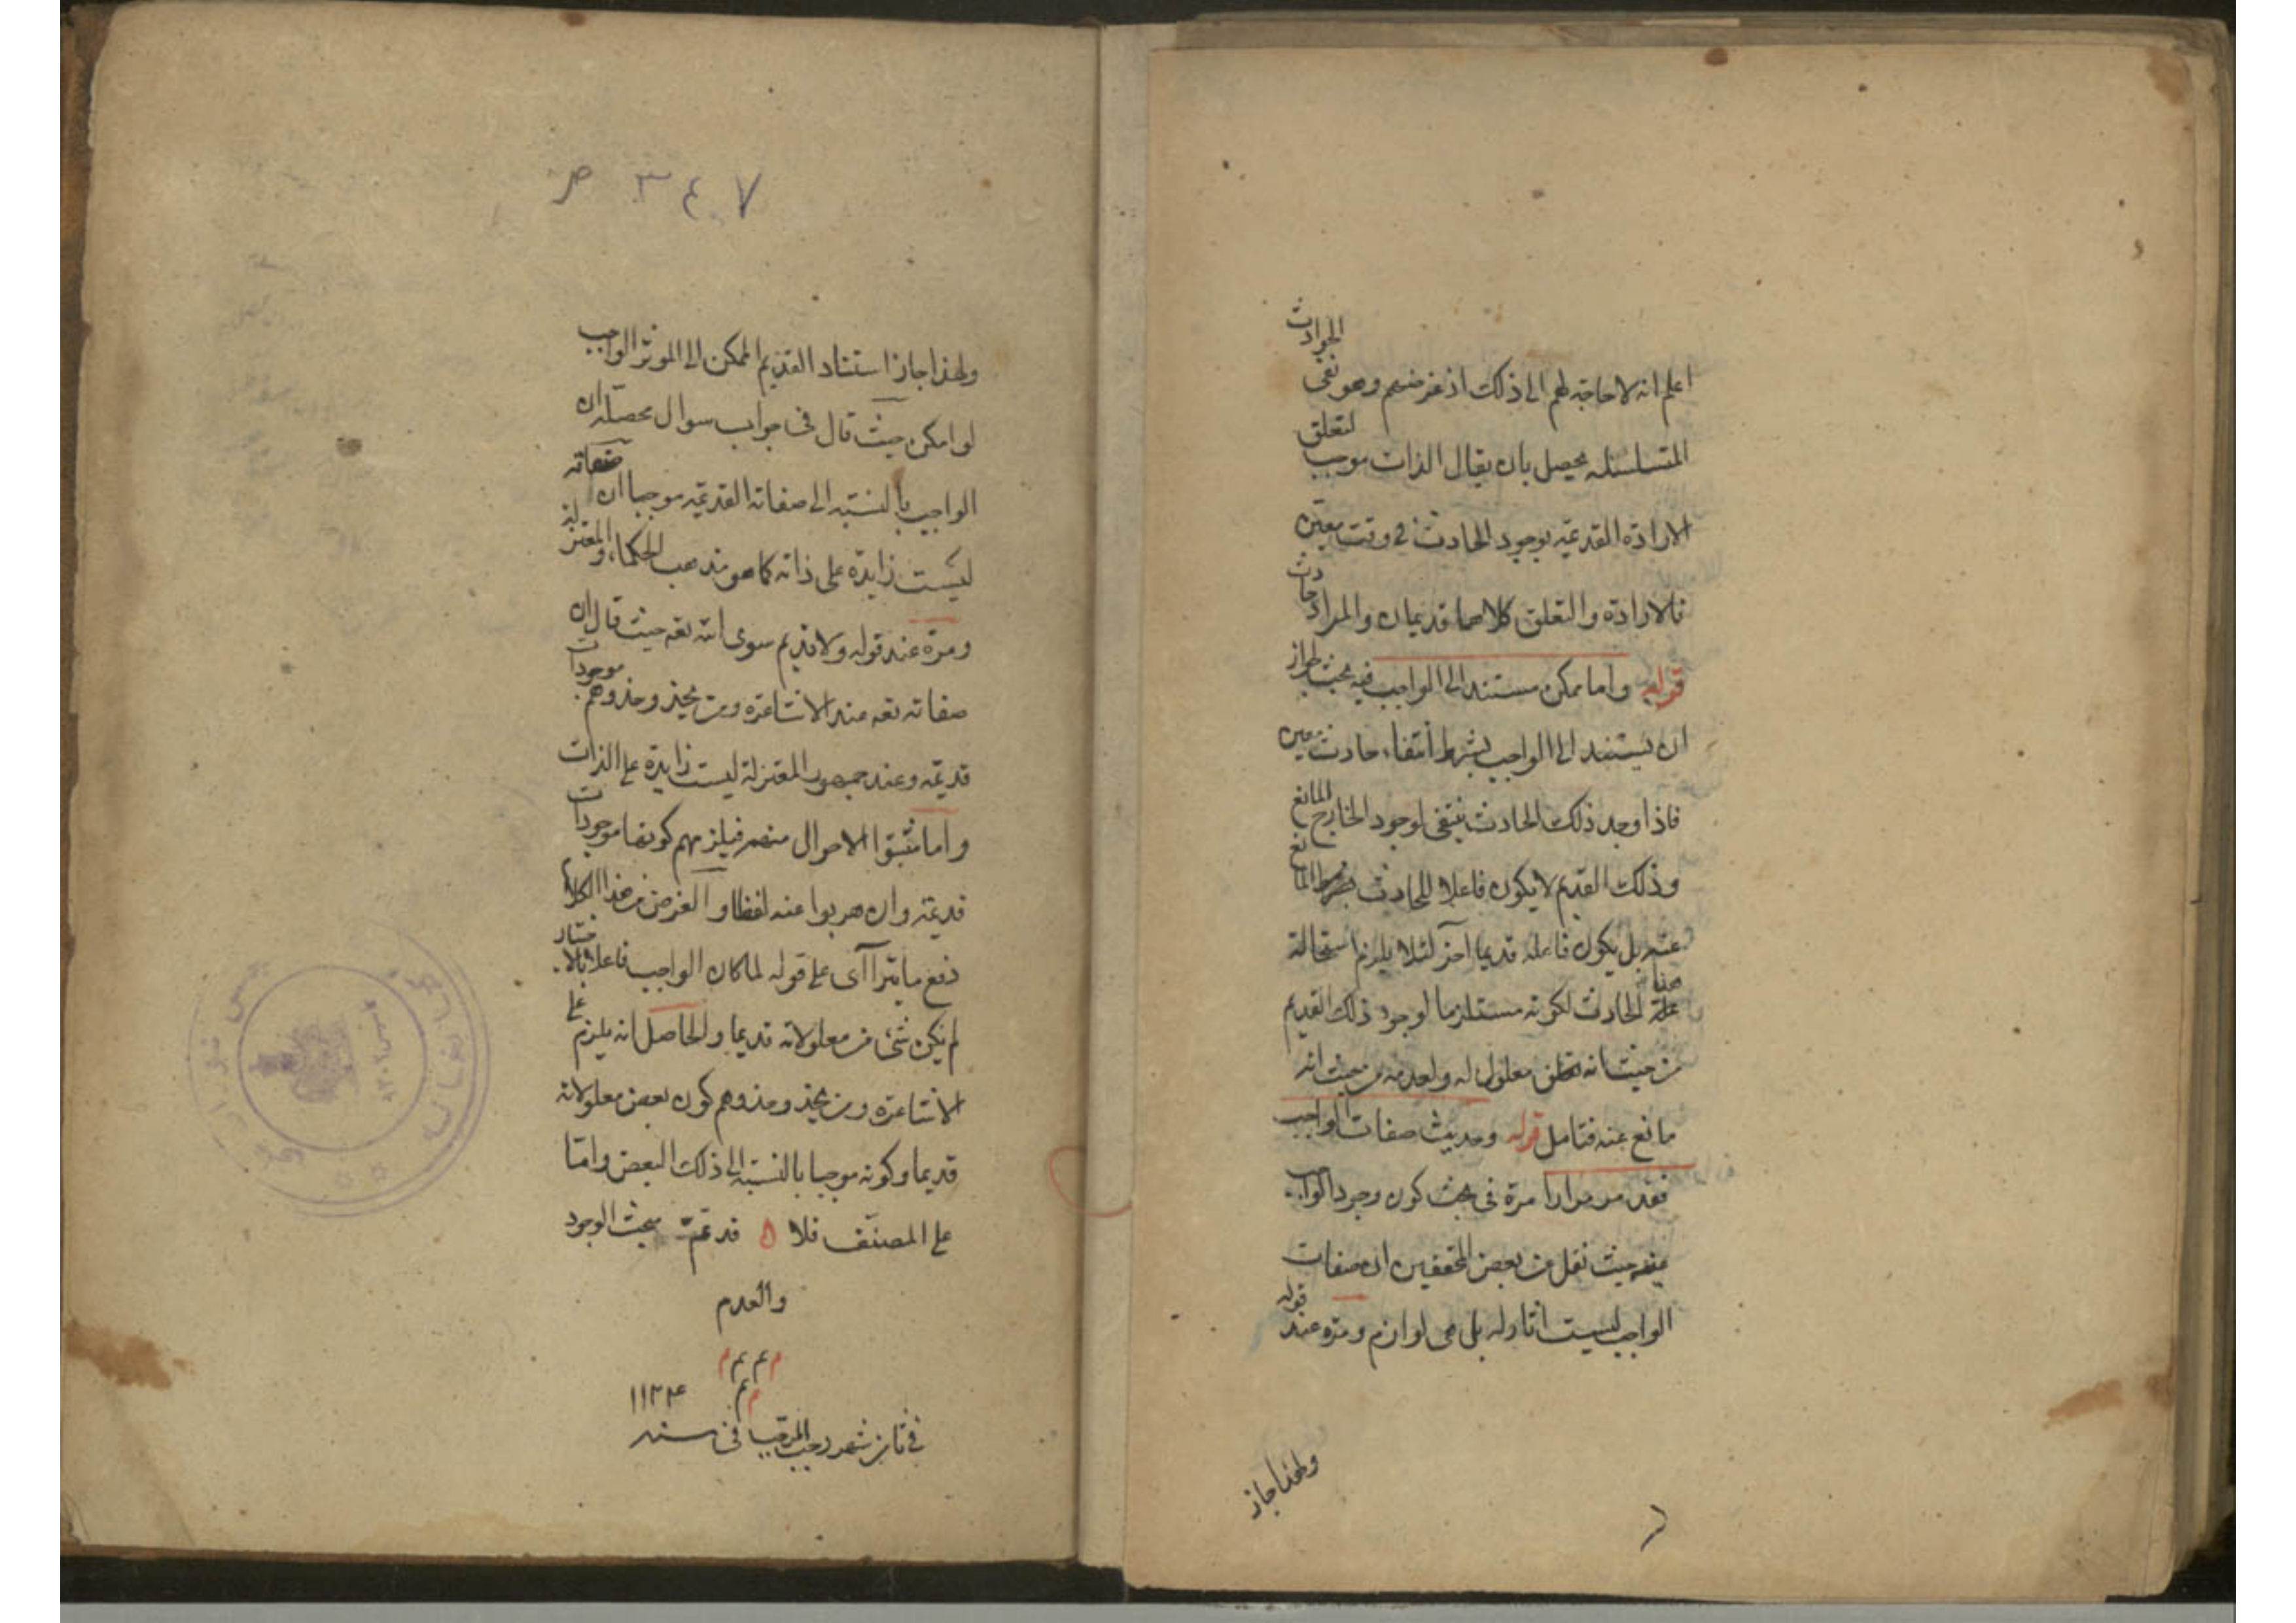 اعلم انه لا حاجة لهم الى ذلك اذ غرضهم وهو نفى الحوادث
المتسلسله يحصل بان يقال الذات موجب لتعلق
الارادة القديمة بوجود الحادث فى وقت معين
فالارادة والتعلق كلاهما قديمان والمراد حادث
قوله واما ممكن مستند الى الواجب فيه بحث لجواز
ان يستند الى الواجب بشرط انتفاء حادث معين
فاذا وجد ذلك الحادث ينتفى لوجود الخارج المانع
وذلك القديم لا يكون فاعلا للحادث المانع
عنه بل يكون فاعله قديما آخر لئلا يلزم استحالة
علة الحادث لكونه مستلزما لوجود ذلك القديم
من حيث انه معلول له ولعدمه من حيث انه
مانع عنه فتامل قوله وحديث صفات الواجب
فقد مر مرارا مرة فى بحث كون وجود الواجب
عينه حيث نقل من بعض المحققين ان صفات
الواجب ليست اثارا له بل هى لوازم ومرة عند قوله
ولهذا جاز
ص ٣٤٧
ولهذا جاز استناد القديم الممكن الى الموثر الواجب
لو امكن حيث قال فى جواب سوال محصله ان
الواجب بالنسبة الى صفاته القديمة موجبا ان صفاته
ليست زايدة على ذاته كما هو مذهب الحكماء والمعتزله
ومرة عند قوله ولا قديم سوى الله تعه حيث قال ان
صفاته تعه عند الاشاعرة ومن يحذو حذوهم موجودات
قديمة وعند جمهور المعتزلة ليست زايدة على الذات
واما مثبتوا الاحوال منهم فيلزمهم كونها موجودات
قديمة وان هربوا عنه لفظا والغرض من هذا الكلام
دفع ما يترا آى على قوله لما كان الواجب فاعلا بالاختيار
لم يكن شئ من معلولاته قديما والحاصل انه يلزم على
الاشاعرة ومن يحذو حذوهم كون بعض معلولاته
قديما وكونه موجبا بالنسبة الى ذلك البعض واما
على المصنف فلا ه قد تمت مبحث الوجود
والعدم
م م م م
م م
فى شهر رجب المرجب فى سنه ١١٣٤